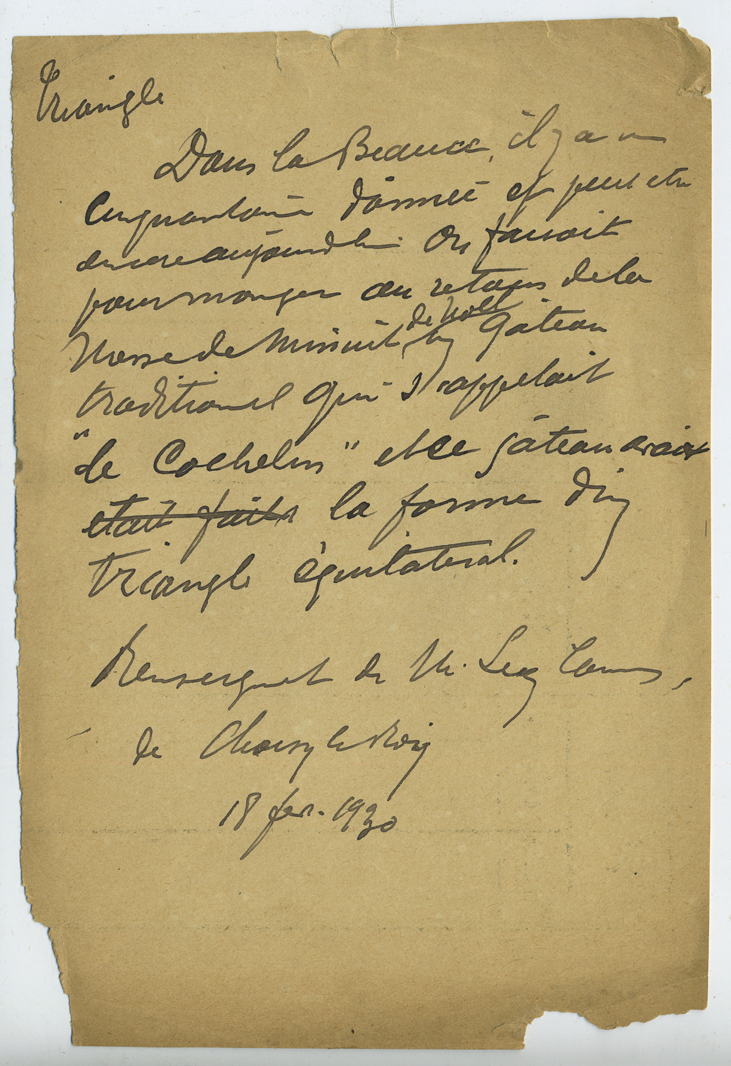 Triangle
Dans la Beauce, il y a une
cinquantaine d'année et peut etre
encore aujourd'hui on faisait
pour manger au retour de la
Messe de Minuit, de Noël un gâteau
traditionnel qui s'appelait
"le Cochelin" et ce gâteau avait
était fait la forme d'un
triangle équilateral.
Renseignet de M.
de Choisy le Roi
18 fev. 1930